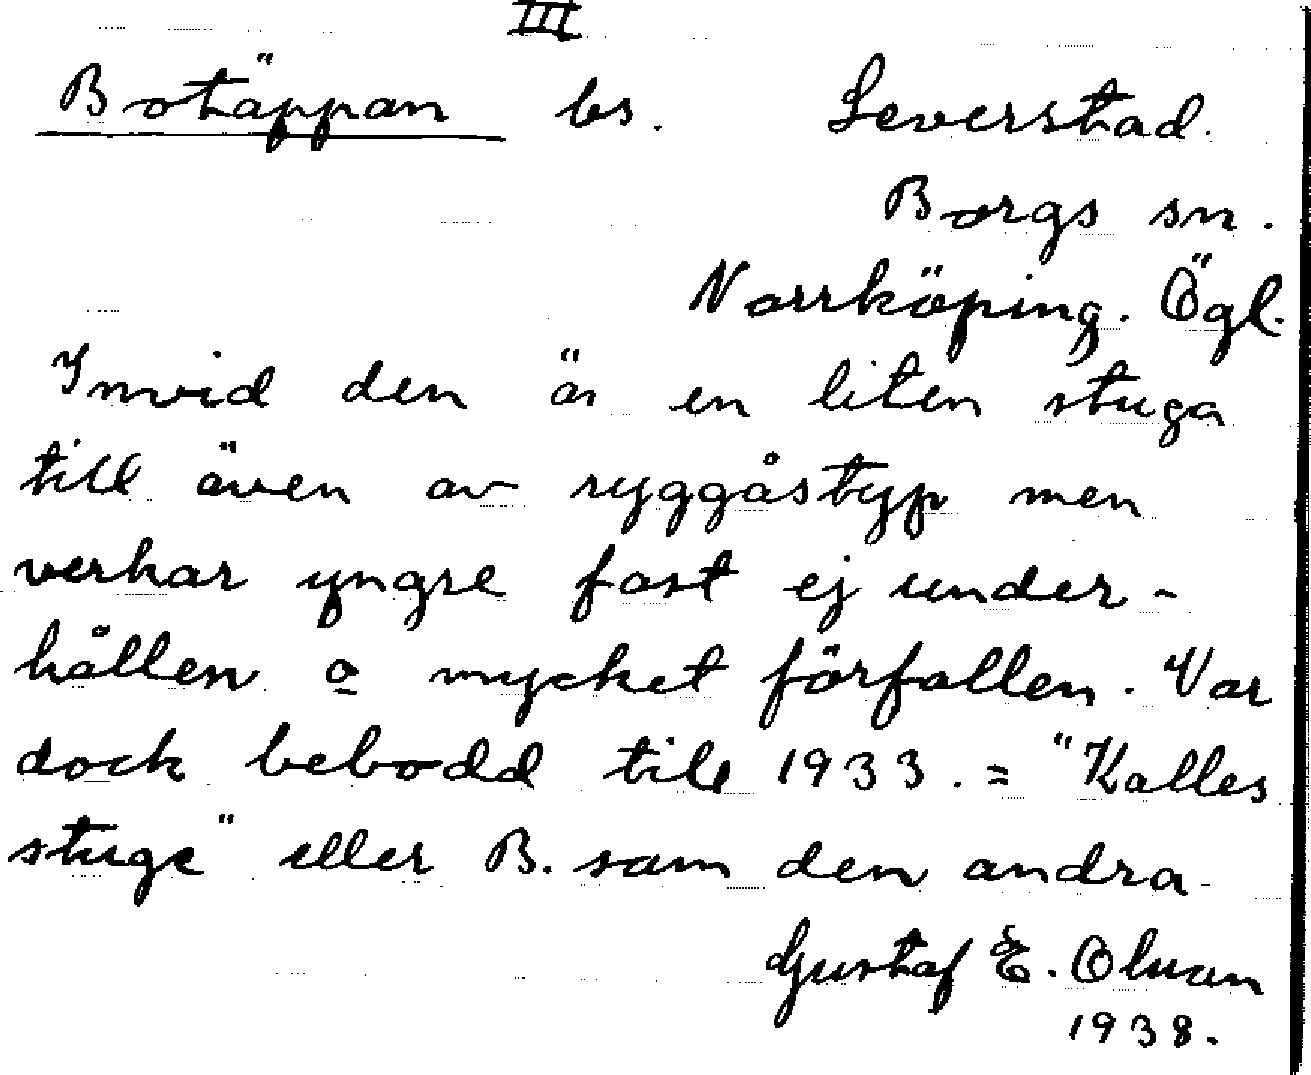 III
Botäppan bs. Leverstad.
Borgs sn.
Norrköping. Ögl.
Invid den är en liten stuga
till även av ryggåstyp men
verkar yngre fast ej under-
hållen o mycket förfallen. Var
dock bebodd till 1933. = "Kalles
stuge" eller B. som den andra
Gustaf E.
1938.